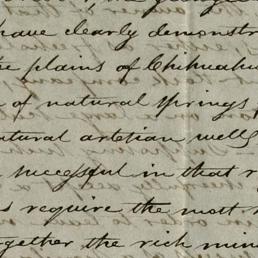 have clearly demonstr
the plains of Chihuahu
of natural springs,
natural artesian wells
successful in that r
require the most
together the rich min